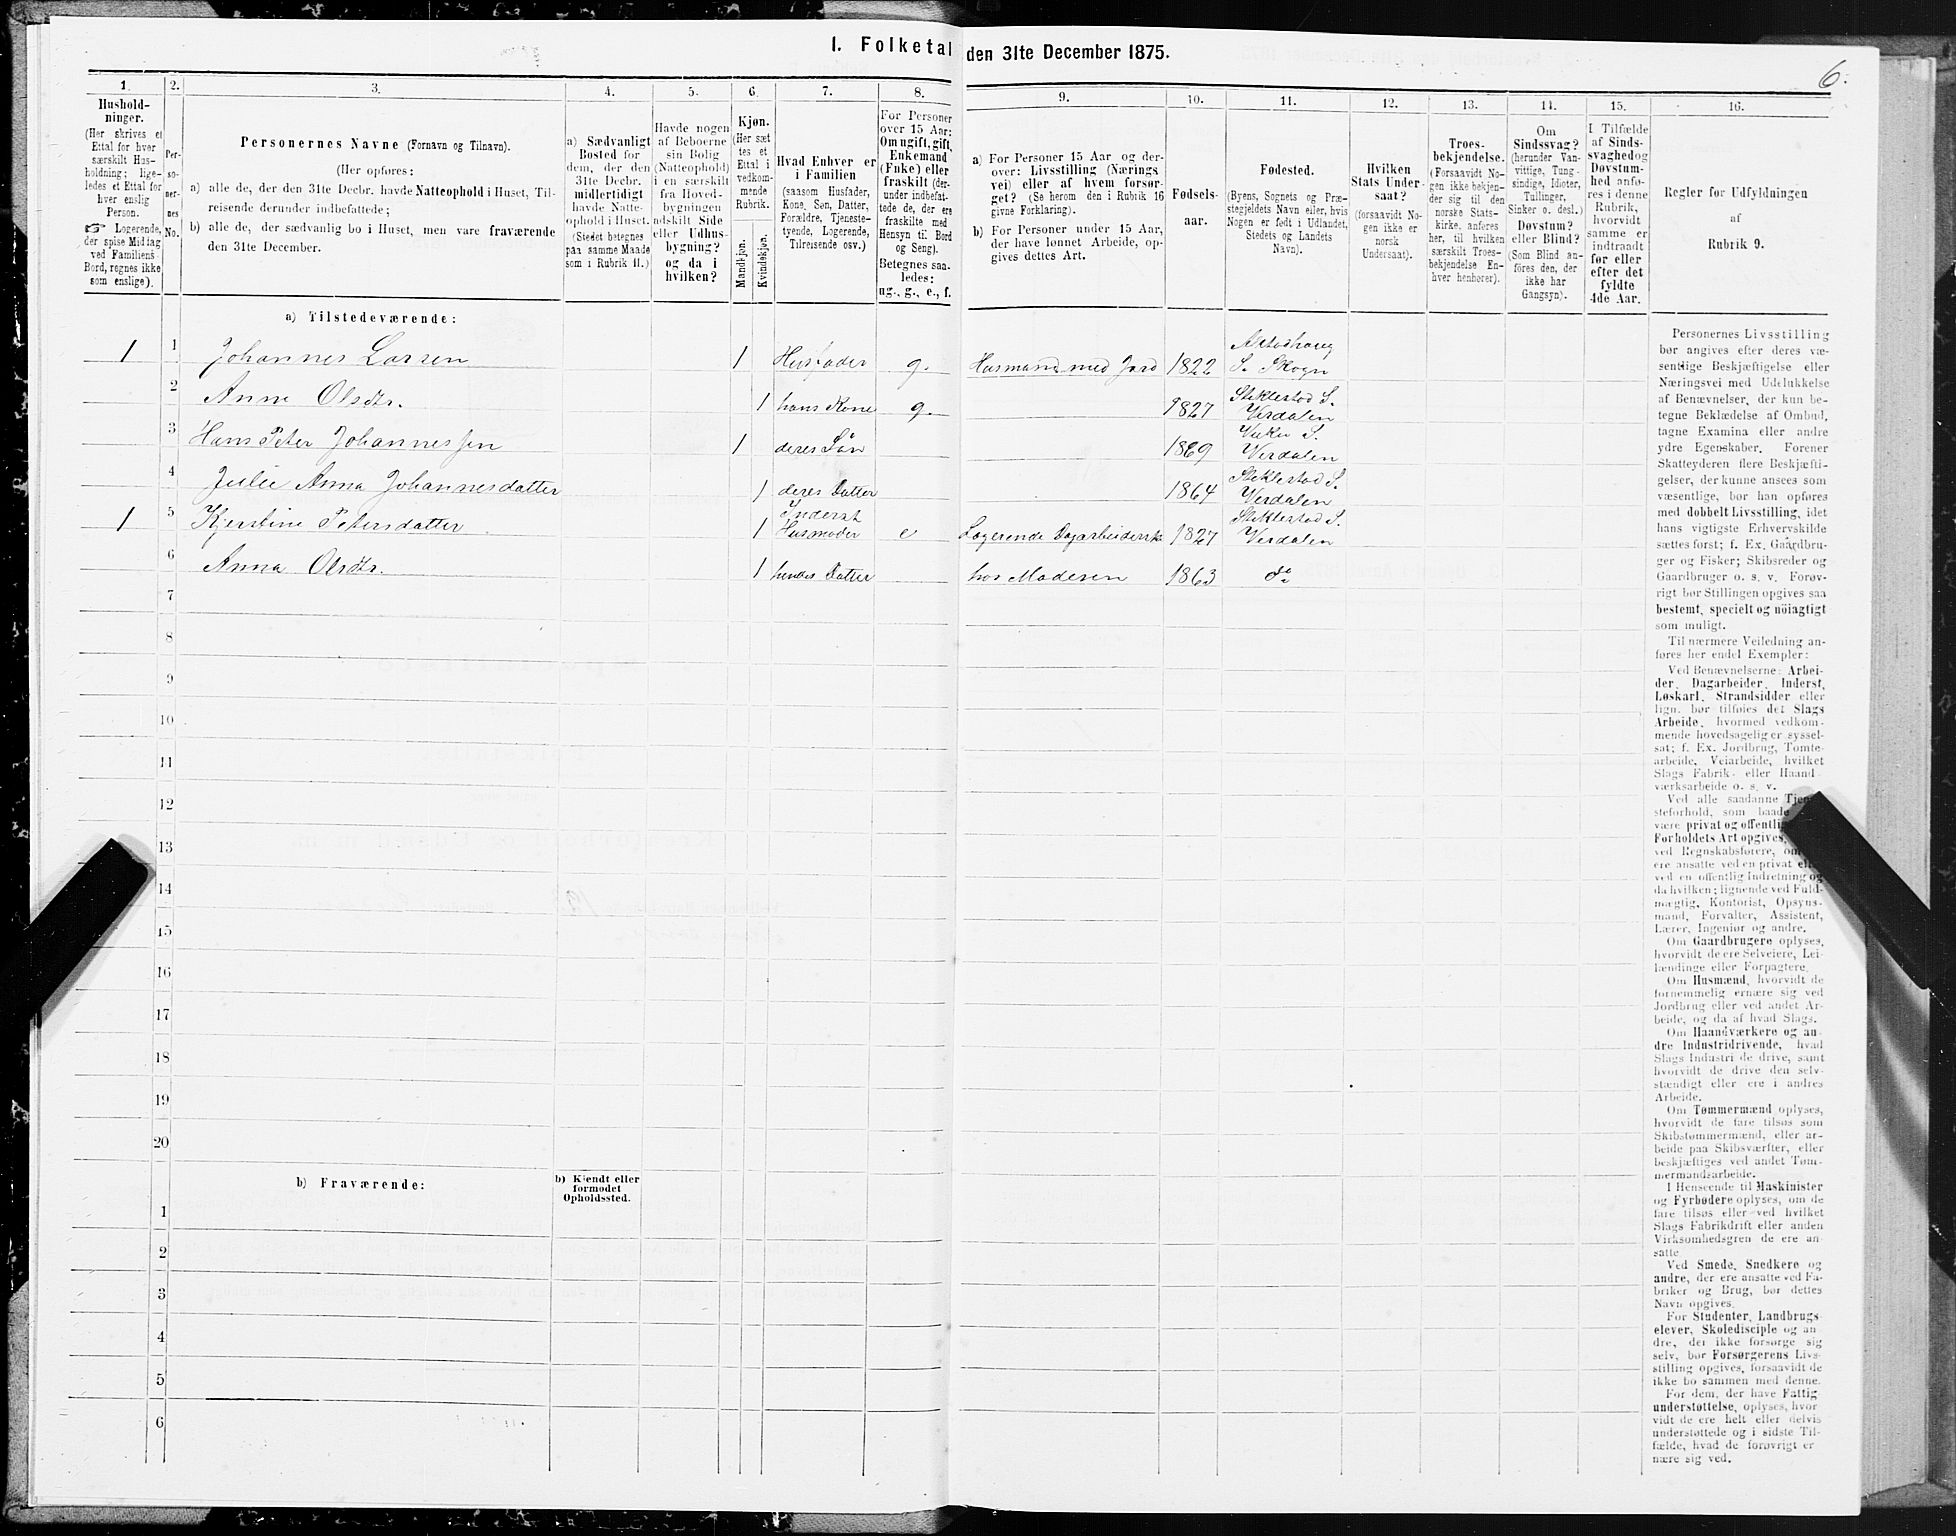 I. Folketal den 31te December 1875.
6.
1.
Hushold-
ninger.
(Her skrives et
Ettal for hver
særskilt Hus-
holdning; lige-
ledes et Ettal for
hver enslig
Person.
☞ Logerende,
der spise Middag
ved Familiens
Bord, regnes ikke
som enslige).
2.
Per-
so-
ner-
nes
No.
3.
Personernes Navne (Fornavn og Tilnavn).
(Her opføres:
a) alle de, der den 31te Decbr. havde Natteophold i Huset, Til-
reisende derunder indbefattede;
b) alle de, der sædvanlig bo i Huset, men vare fraværende
den 31te December.
4.
a) Sædvanligt
Bosted for
dem, der den
31te Decbr.
midlertidigt
havde Natte-
ophold i Huset.
(Stedet betegnes
paa samme Maade
som i Rubrik 11.)
5.
Havde nogen
af Beboerne
sin Bolig
(Natteophold)
i en særskilt
fra Hoved-
bygningen
adskilt Side
eller Udhus-
bygning?
og da i
hvilken?
6.
Kjøn.
(Her sæt-
tes et
Ettal i
vedkom-
mende
Rubrik.
Mandkjøn.
Kvindekjøn.
7.
Hvad Enhver er
i Familien
(saasom Husfader,
Kone, Søn, Datter,
Forældre, Tjeneste-
tyende, Logerende,
Tilreisende osv.)
8.
For Personer
over 15 Aar:
Om ugift, gift,
Enkemand
(Enke) eller
fraskilt (der-
under indbefat-
tede de, der ere
fraskilte med
Hensyn til Bord
og Seng).
Betegnes saa-
ledes:
ug., g., e., f.
9.
a) For Personer 15 Aar og der-
over: Livsstilling (Nærings
vei) eller af hvem forsør-
get? (Se herom den i Rubrik 16
givne Forklaring).
b) For Personer under 15 Aar,
der have lønnet Arbeide, op-
gives dettes Art.
10.
Fødsels-
aar.
11.
Fødested.
(Byens, Sognets og Præ-
stegjeldets Navn eller, hvis
Nogen er født i Udlandet,
Stedets og Landets
Navn).
12.
Hvilken
Stats Under-
saat?
(forsaavidt No-
gen ikke er
norsk
Undersaat).
13.
Troes-
bekjendelse.
(Forsaavidt No-
gen ikke bekjen-
der sig til den
norske Stats-
kirke, anføres
her, til hvilken
særskilt Troes-
bekjendelse En-
hver henhører).
14.
Om
Sindssvag?
(herunder Van-
vittige, Tung-
sindige, Idioter,
Tullinger,
Sinker o. desl.)
Døvstum?
eller Blind?
(Som Blind an-
føres den, der
ikke har
Gangsyn).
15.
I Tilfælde
af Sinds-
svaghed og
Døvstum-
hed anfø-
res i denne
Rubrik,
hvorvidt
samme er
indtraadt
før eller
efter det
fyldte
4de Aar.
16.
Regler for Udfyldningen
af
Rubrik 9.
a) Tilstedeværende:
1 1 Johannes Larsen 1 Husfader g. Husmand med Jord 1822 S. Skogn
2 Anne Olsdtr. 1 hans Kone g. 1827 Stiklestad S. Verdalen
3 Hans Peter Johannessen 1 deres Søn 1869 Vuku S. Verdalen
4 Julie Anna Johannesdatter 1 deres Datter 1864 Stiklestad S. Verdalen
1 5 Kjerstine Petersdatter 1 Inderst Husmoder e Logerende Dagarbeiderske 1827 Stiklestad S. Verdalen
6 Anna Olsdtr. 1 hendes Datter hos Moderen 1863 do
7
8
9
10
11
12
13
14
15
16
17
18
19
20
b) Fraværende:
b) Kjendt eller
formodet
Opholdssted.
1
2
3
4
5
6
Personernes Livsstilling
bør angives efter deres væ-
sentlige Beskjæftigelse eller
Næringsvei med Udelukkelse
af Benævnelser, der kun be-
tegne Beklædelse af Ombud,
tagne Examina eller andre
ydre Egenskaber. Forener
Skatteyderen flere Beskjæfti-
gelser, der kunne ansees som
væsentlige, bør han opføres
med dobbelt Livsstilling, idet
hans vigtigste Erhvervskilde
sættes først; f. Ex. Gaardbru-
ger og Fisker; Skibsreder og
Gaardbruger o. s. v. Forøv-
rigt bør Stillingen opgives saa
bestemt, specielt og nöiagtigt
som muligt.
Til nærmere Veiledning an-
føres her endel Exempler:
Ved Benævnelserne: Arbei-
der, Dagarbeider, Inderst,
Løskarl, Strandsidder eller
lign. bør tilføies det Slags
Arbeide, hvormed vedkom-
mende hovedsagelig er syssel-
sat; f. Ex. Jordbrug, Tomte-
arbeide, Veiarbeide, hvilket
Slags Fabrik- eller Haand-
værksarbeide o. s. v.
Ved alle saadanne
steforhold, som baade
være privat og
Forholdets Art opgives,
ved Regnskabsførere,
ere ansatte ved en privat
ved en offentlig Indretning og
da hvilken; lignende ved Fuld-
mægtig, Kontorist, Opsyns-
mand, Forvalter, Assistent,
Lærer, Ingeniør og andre.
Om Gaardbrugere oplyses,
hvorvidt de ere Selveiere, Lei-
lændinge eller Forpagtere.
Om Husmænd, hvorvidt de
fornemmelig ernære sig ved
Jordbrug eller ved andet Ar-
beide, og da af hvad Slags.
Om Haandværkere og an-
dre Industridrivende, hvad
Slags Industri de drive, samt
hvorvidt de drive den selv-
stændigt eller ere i andres
Arbeide.
Om Tømmermænd oplyses,
hvorvidt de fare tilsøs som
Skibstømmermænd, eller ar-
beide paa Skibsværfter, eller
beskjæftiges ved andet Tøm-
mermandsarbeide.
I Henseende til Maskinister
og Fyrbødere oplyses, om de
fare tilsøs eller ved hvilket
Slags Fabrikdrift eller anden
Virksomhedsgren de ere an-
satte.
Ved Smede, Snedkere og
andre, der ere ansatte ved Fa-
briker og Brug, bør dettes
Navn opgives.
For Studenter, Landbrugs-
elever, Skoledisciple og an-
dre, der ikke forsørge sig
selv, bør Forsørgerens Livs-
stilling opgives, forsaavidt de
ikke bo sammen med denne.
For dem, der have Fattig-
understøttelse, oplyses, hvor-
vidt de ere helt eller delvis
understøttede og i sidste Til-
fælde, hvad de forøvrigt er-
nære sig ved.